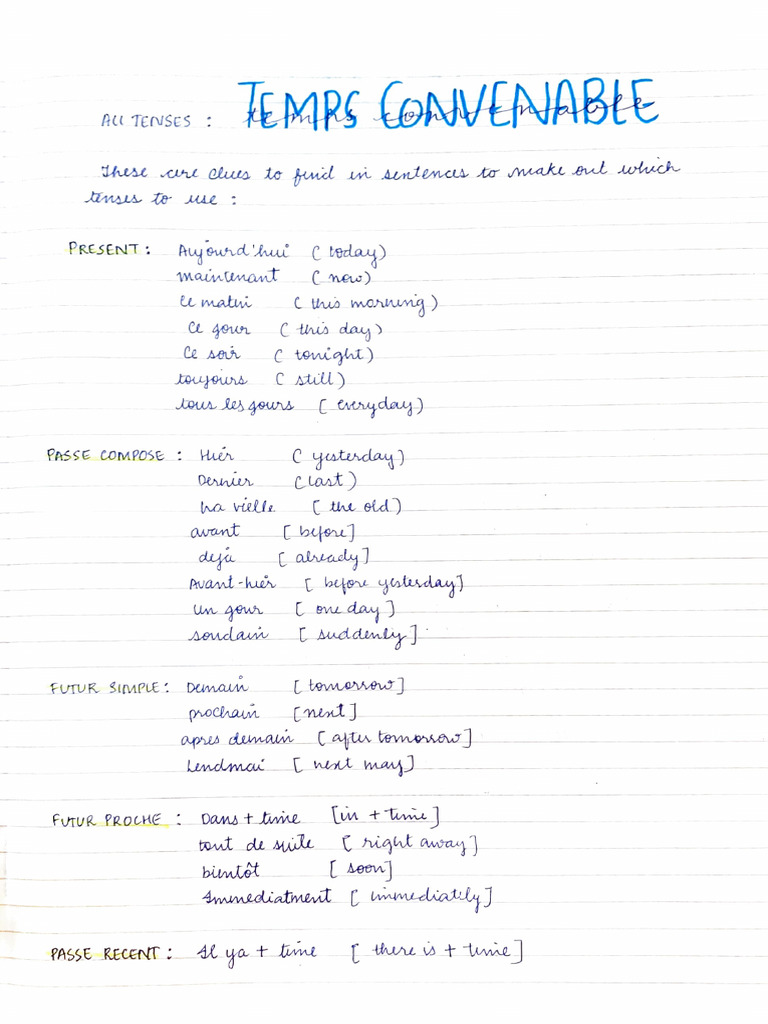 ALL TENSES : TEMPS CONVENABLE
temps convenable
These are clues to find in sentences to make out which
tenses to use :
PRESENT : Aujourd'hui ( today)
maintenant ( now)
Ce matin ( this morning )
Ce jour ( this day )
Ce soir ( tonight )
toujours ( still )
tous les jours ( everyday )
PASSE COMPOSE : Hier ( yesterday )
Dernier ( last )
La vielle [ the old )
avant [ before]
dejà [ already ]
Avant-hier [ before yesterday]
un jour [ one day ]
soudain [ suddenly ]
FUTUR SIMPLE : Demain [ tomorrow ]
prochain [ next ]
apres demain [ after tomorrow ]
Lendmai [ next may ]
FUTUR PROCHE : Dans + time [in + time ]
tout de suite [ right away ]
bientôt [ soon]
Immediatment [ immediately ]
PASSE RECENT : Il ya + time [ there is + time ]